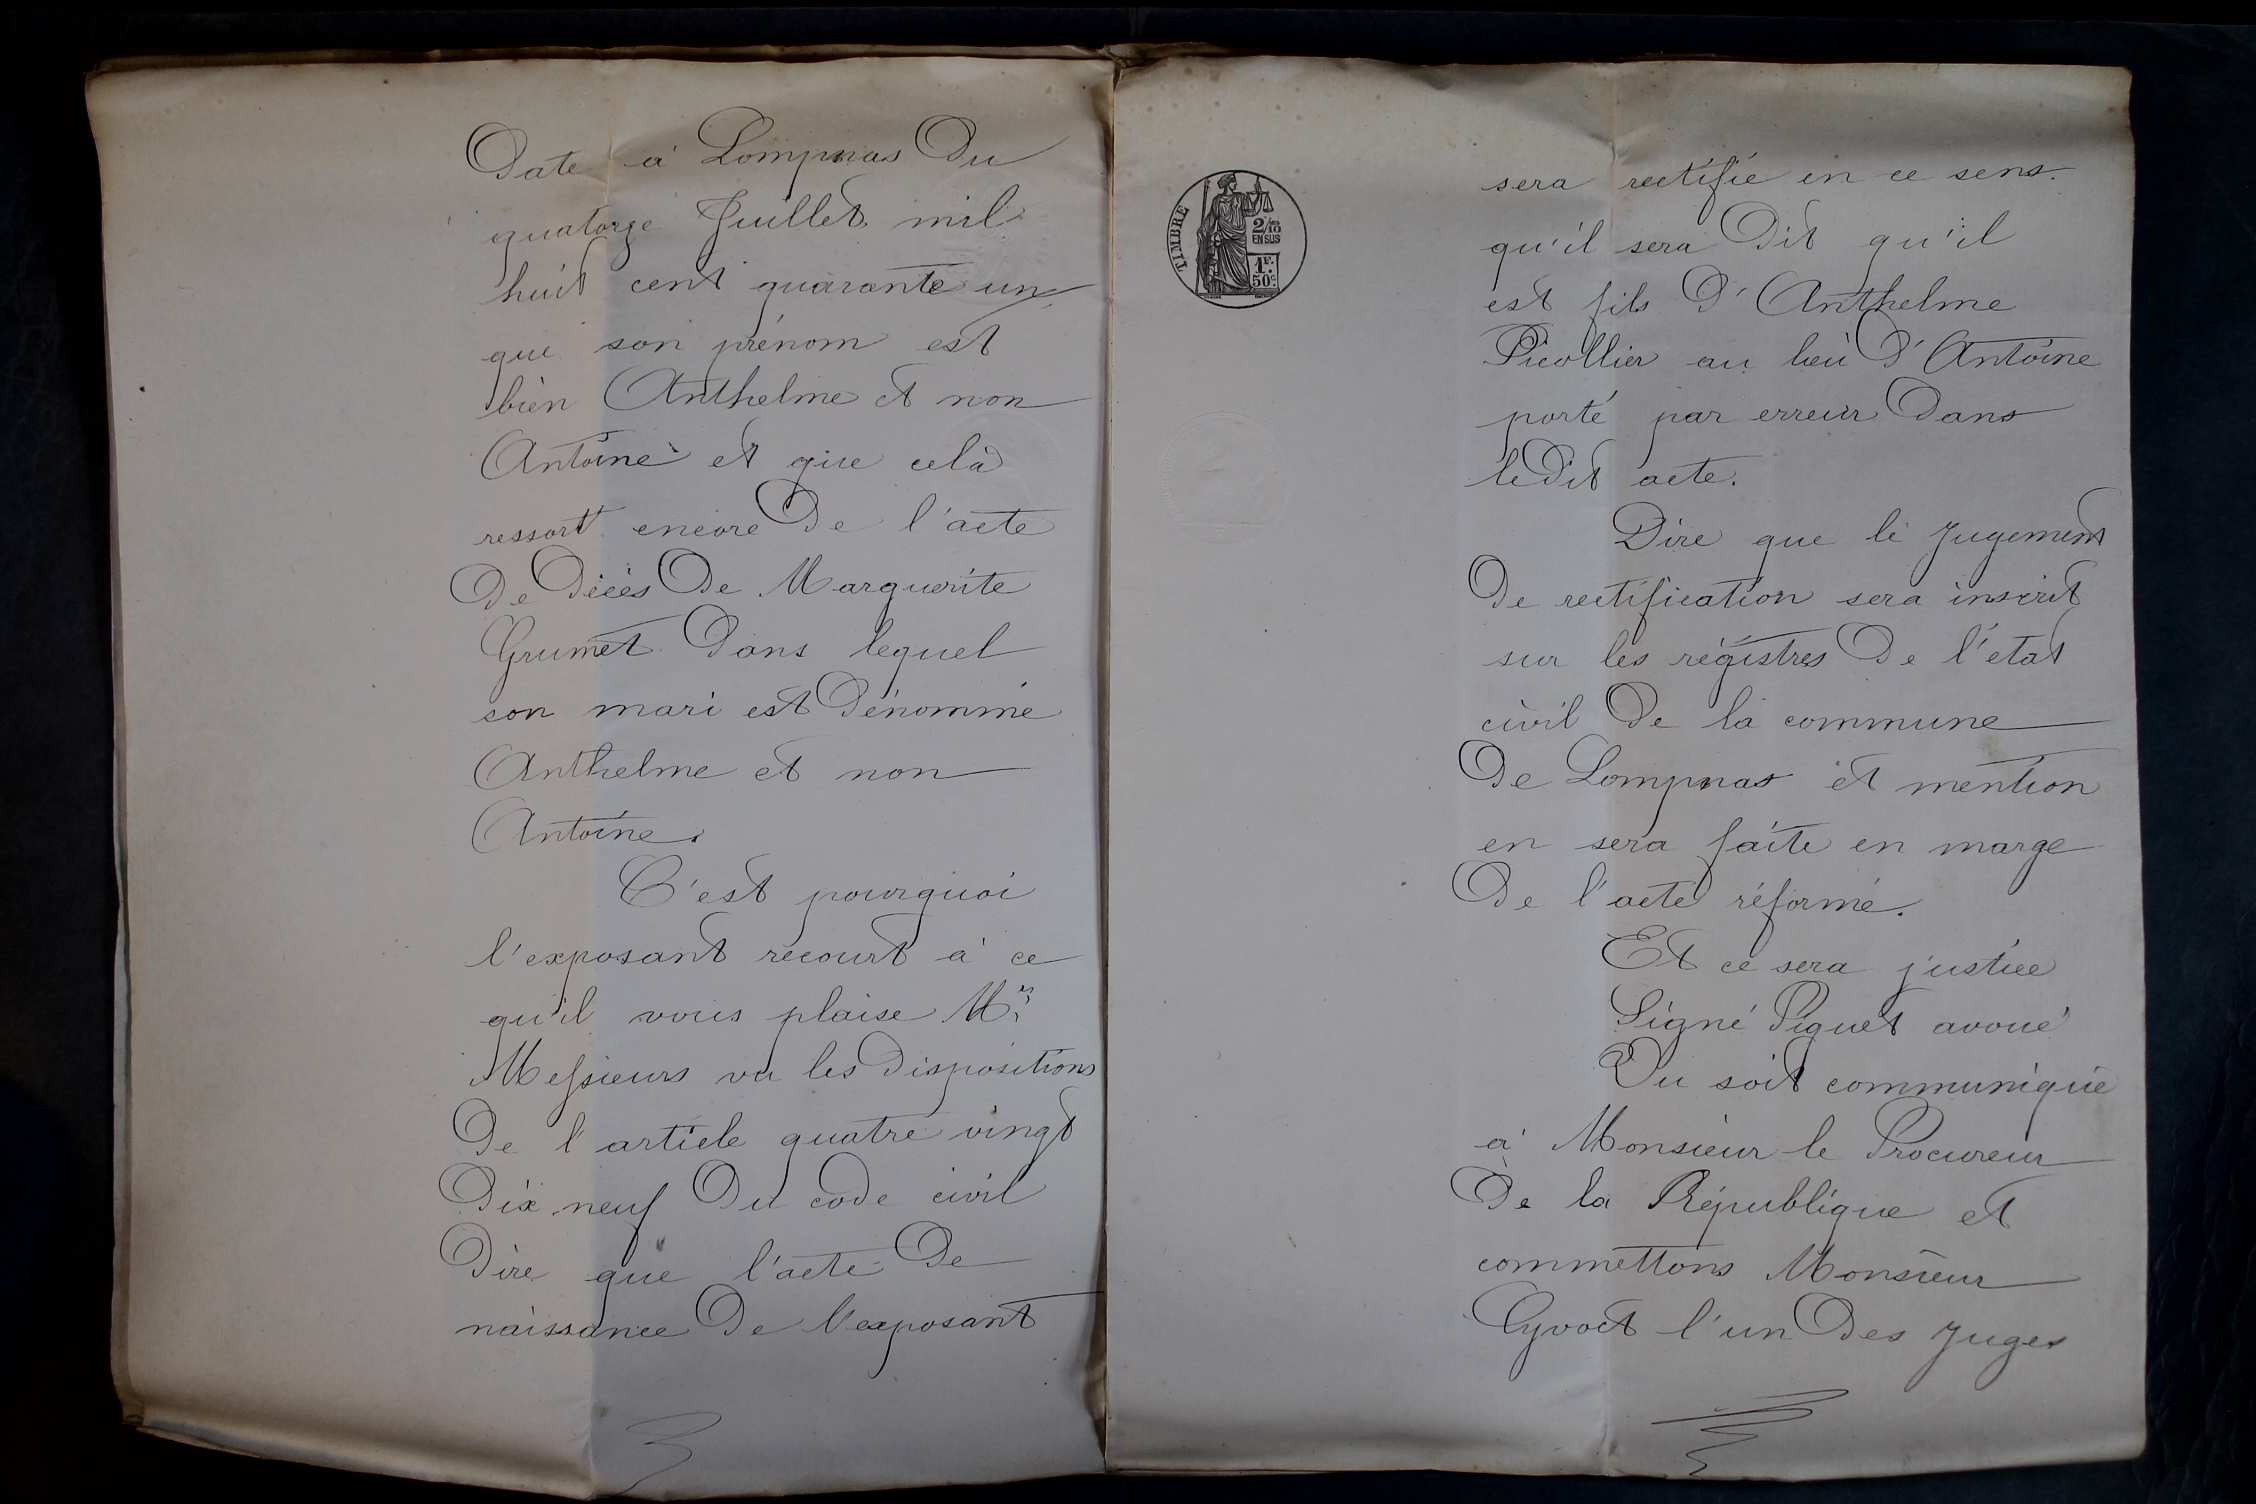 Date à Lompnas Du
quatorze Juillet mil
huit cent quarante un
que son prénom est
bien Anthelme et non
Antoine et que celà
ressort encore De l'acte
De Décès De Marguerite
Grumet Dans lequel
son mari est Dénommé
Anthelme et non
Antoine.
C'est pourquoi
l'exposant recourt à ce
qu'il vous plaise Mrs
Messieurs vu les Dispositions
De l'article quatre vingt
Dix neuf Du code civil
Dire que l'acte De
naissance De l'exposant
TIMBRE
2/10
EN SUS
1F.
50c.
sera rectifié en ce sens
qu'il sera Dit qu'il
est fils D'Anthelme
Picollier au lieu D'Antoine
porté par erreur Dans
le Dit acte.
Dire que le Jugement
De rectification sera inscrit
sur les régistres De l'état
civil De la commune
De Lompnas et mention
en sera faite en marge
De l'acte réformé.
Et ce sera justice
Signé Piquet avoué
Du soit communiqué
à Monsieur le Procureur
De la République et
commettons Monsieur
Cyvoct l'un Des Juges